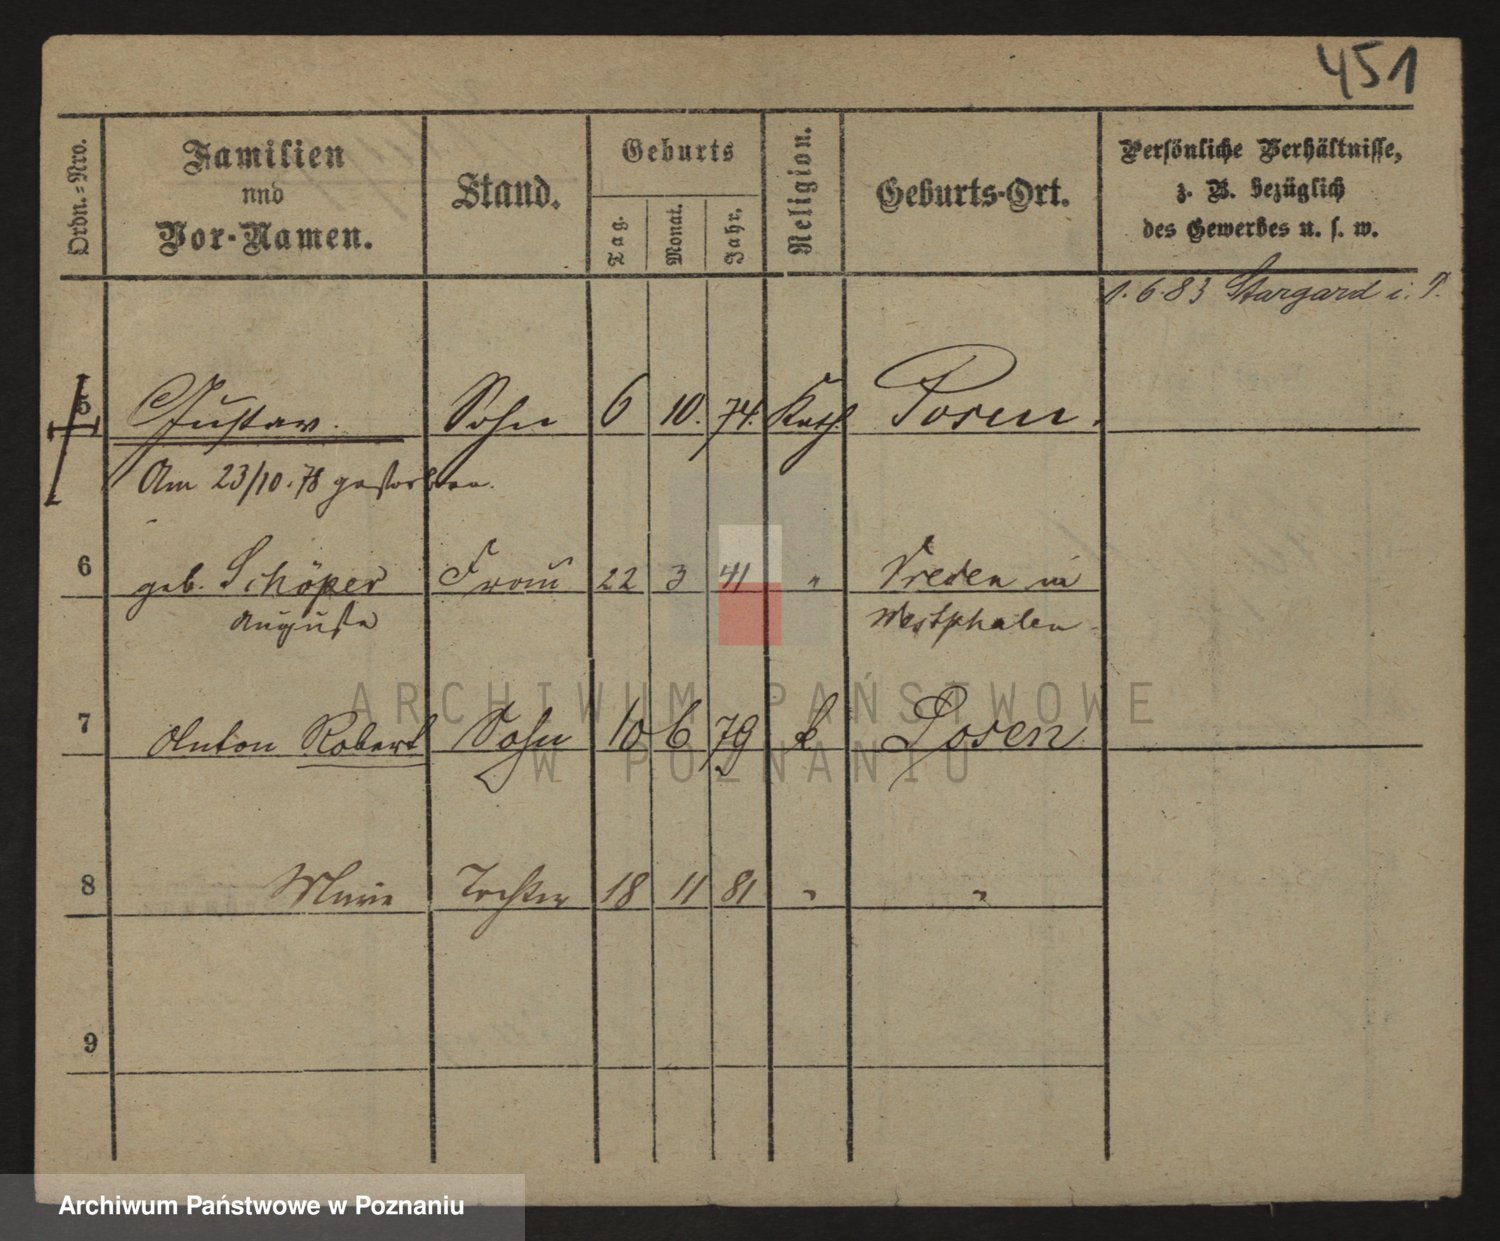 451
Ordn.=Nro.
Familien
und
Vor-Namen.
Stand.
Geburts
Tag.
Monat.
Jahr.
Religion.
Geburts-Ort.
Persönliche Verhältnisse,
z. B. bezüglich
des Gewerbes u. s. w.
1.6.83 Stargard i. P.
5 Gustav. Sohn 6 10. 74. Kath. Posen.
Am 23/10.78 gestorben.
6 geb. Schöper Frau 22 3 41 " Vreden in
Auguste Westphalen
7 Anton Robert Sohn 10 6 79 k Posen
8 Marie Tochter 18 11 81 " "
9
ARCHIWUM PAŃSTWOWE
W POZNANIU
Archiwum Państwowe w Poznaniu